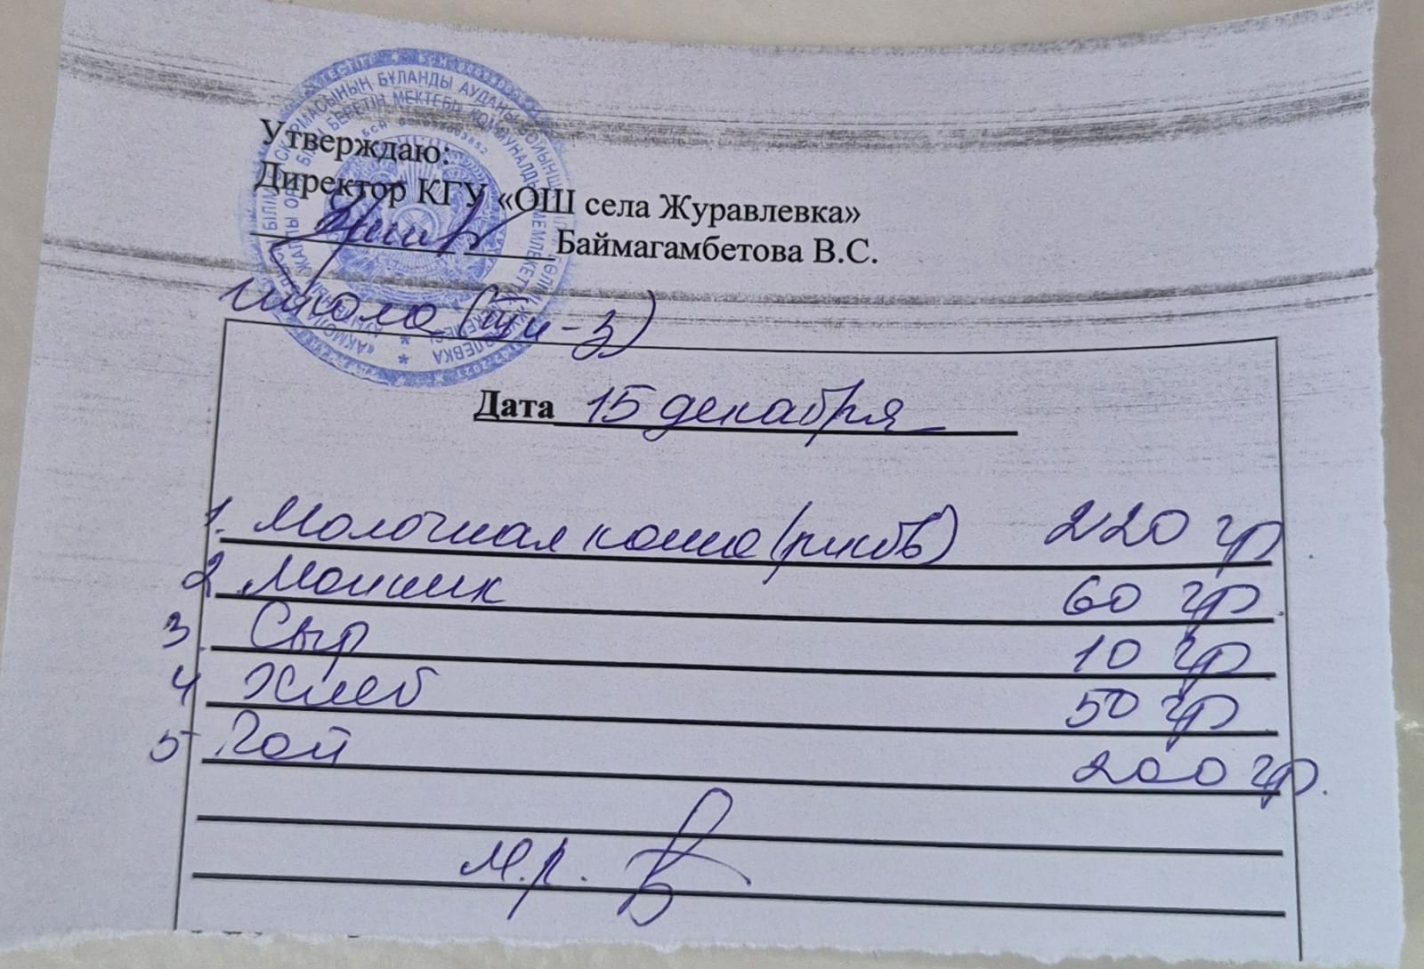 Утверждаю:
Директор КГУ «ОШ села Журавлевка»
Баймагамбетова В.С.
школа
Дата 15 декабря
1. Молочная каша (рисов) 220 гр
2. 60 гр.
3. Сыр 10 гр
4 Хлеб 50 гр
5. Чай 200 гр.
м.р.